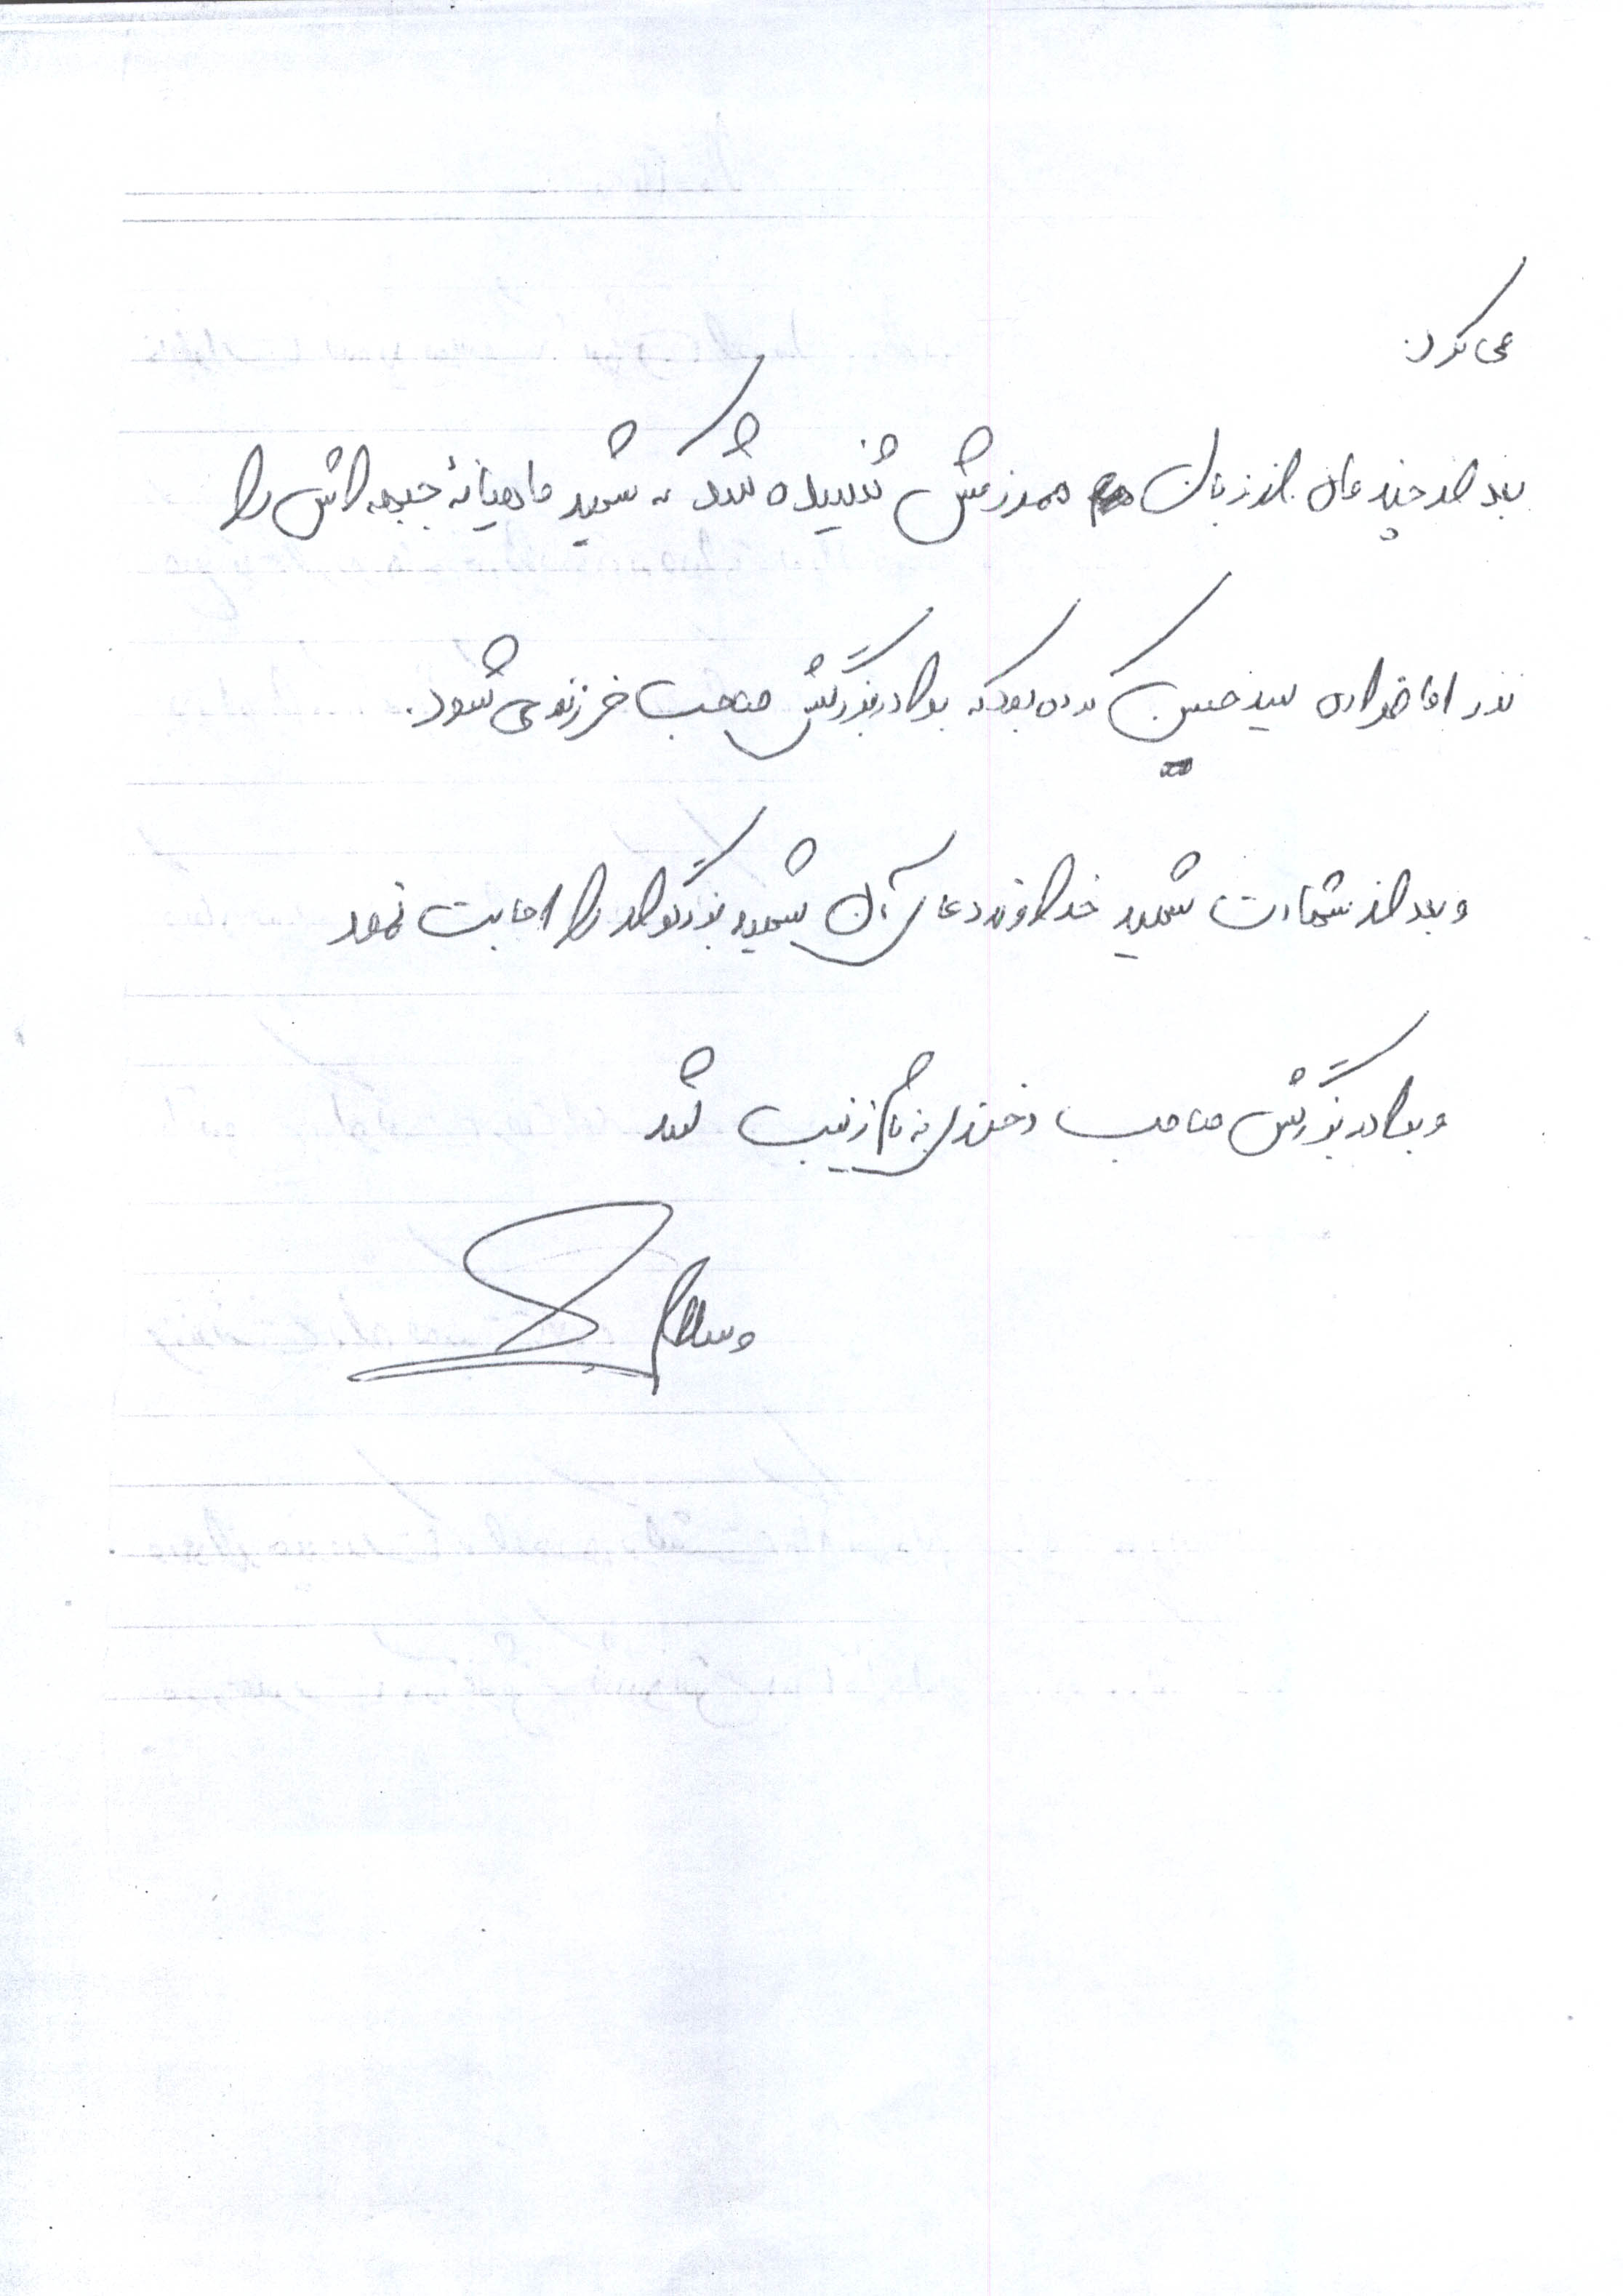 می کرد.
بعد از چند ماه از زبان همرزمش شنیده شد که شهید ماهیانۀ جبهه اش را
نذر امامزاده سید حسین کرده بود که برادر بزرگش صاحب فرزندی شود.
و بعد از شهادت شهید خداوند دعای آن شهید بزرگوار را اجابت نمود
و برادر بزرگش صاحب دختری به نام زینب شد
وسلام